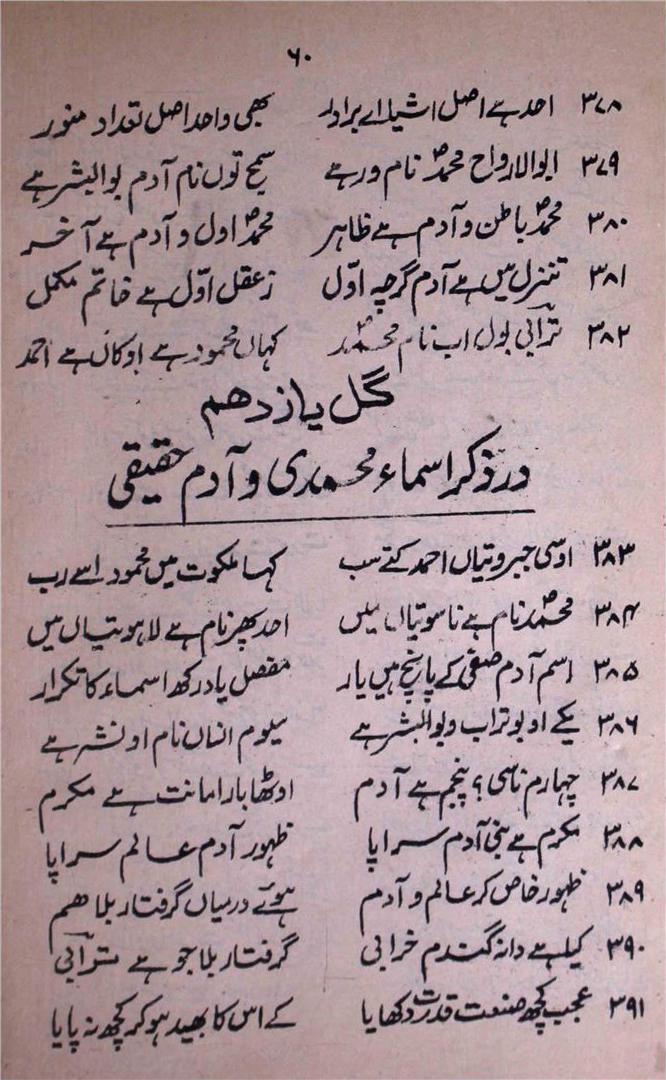 ۶۰
۳۷۸ احد ہے اصل اشیا اے برادر بھی واحد اصل تعداد منور
۳۷۹ ابوالارواح محمدؐ نام ور ہے سمج توں نام آدم بوالبشر ہے
۳۸۰ محمدؐ باطن و آدم ہے ظاہر محمدؐ اول و آدم ہے آخر
۳۸۱ تنزل میں ہے آدم گرچہ اوّل ز عقل اوّل ہے خاتم مکمل
۳۸۲ ترابی بول اب نام محمدؐ کہاں محمود ہے او کاں ہے احمد
گل یازدھم
در ذکر اسماء محمدی و آدم حقیقی
۳۸۳ اوسی جبروتیاں احمد کتے سب کہا ملکوت میں محمود اسے رب
۳۸۴ محمدؐ نام ہے ناسوتیاں میں احد پھر نام ہے لاہوتیاں میں
۳۸۵ اسم آدم صفی کے پانچ ہیں یار مفصل یاد رکھ اسماء کا تکرار
۳۸۶ یکے او بوتراب و بوالبشر ہے سیوم انساں نام او نشر ہے
۳۸۷ چہارم ناسی؟ پنجم ہے آدم اوٹھا بار امانت ہے مکرم
۳۸۸ مکرم ہے بنی آدم سراپا ظہور آدم عالم سراپا
۳۸۹ ظہور خاص کر عالم و آدم ہوئے درمیاں گرفتار بلا ھم
۳۹۰ کیلے دانہ گندم خرابی گرفتار بلا جو ہے ترابی
۳۹۱ عجب کچھ صنعت قدرت دکھایا کے اس کا بھید ہو کر کچھ نہ پایا